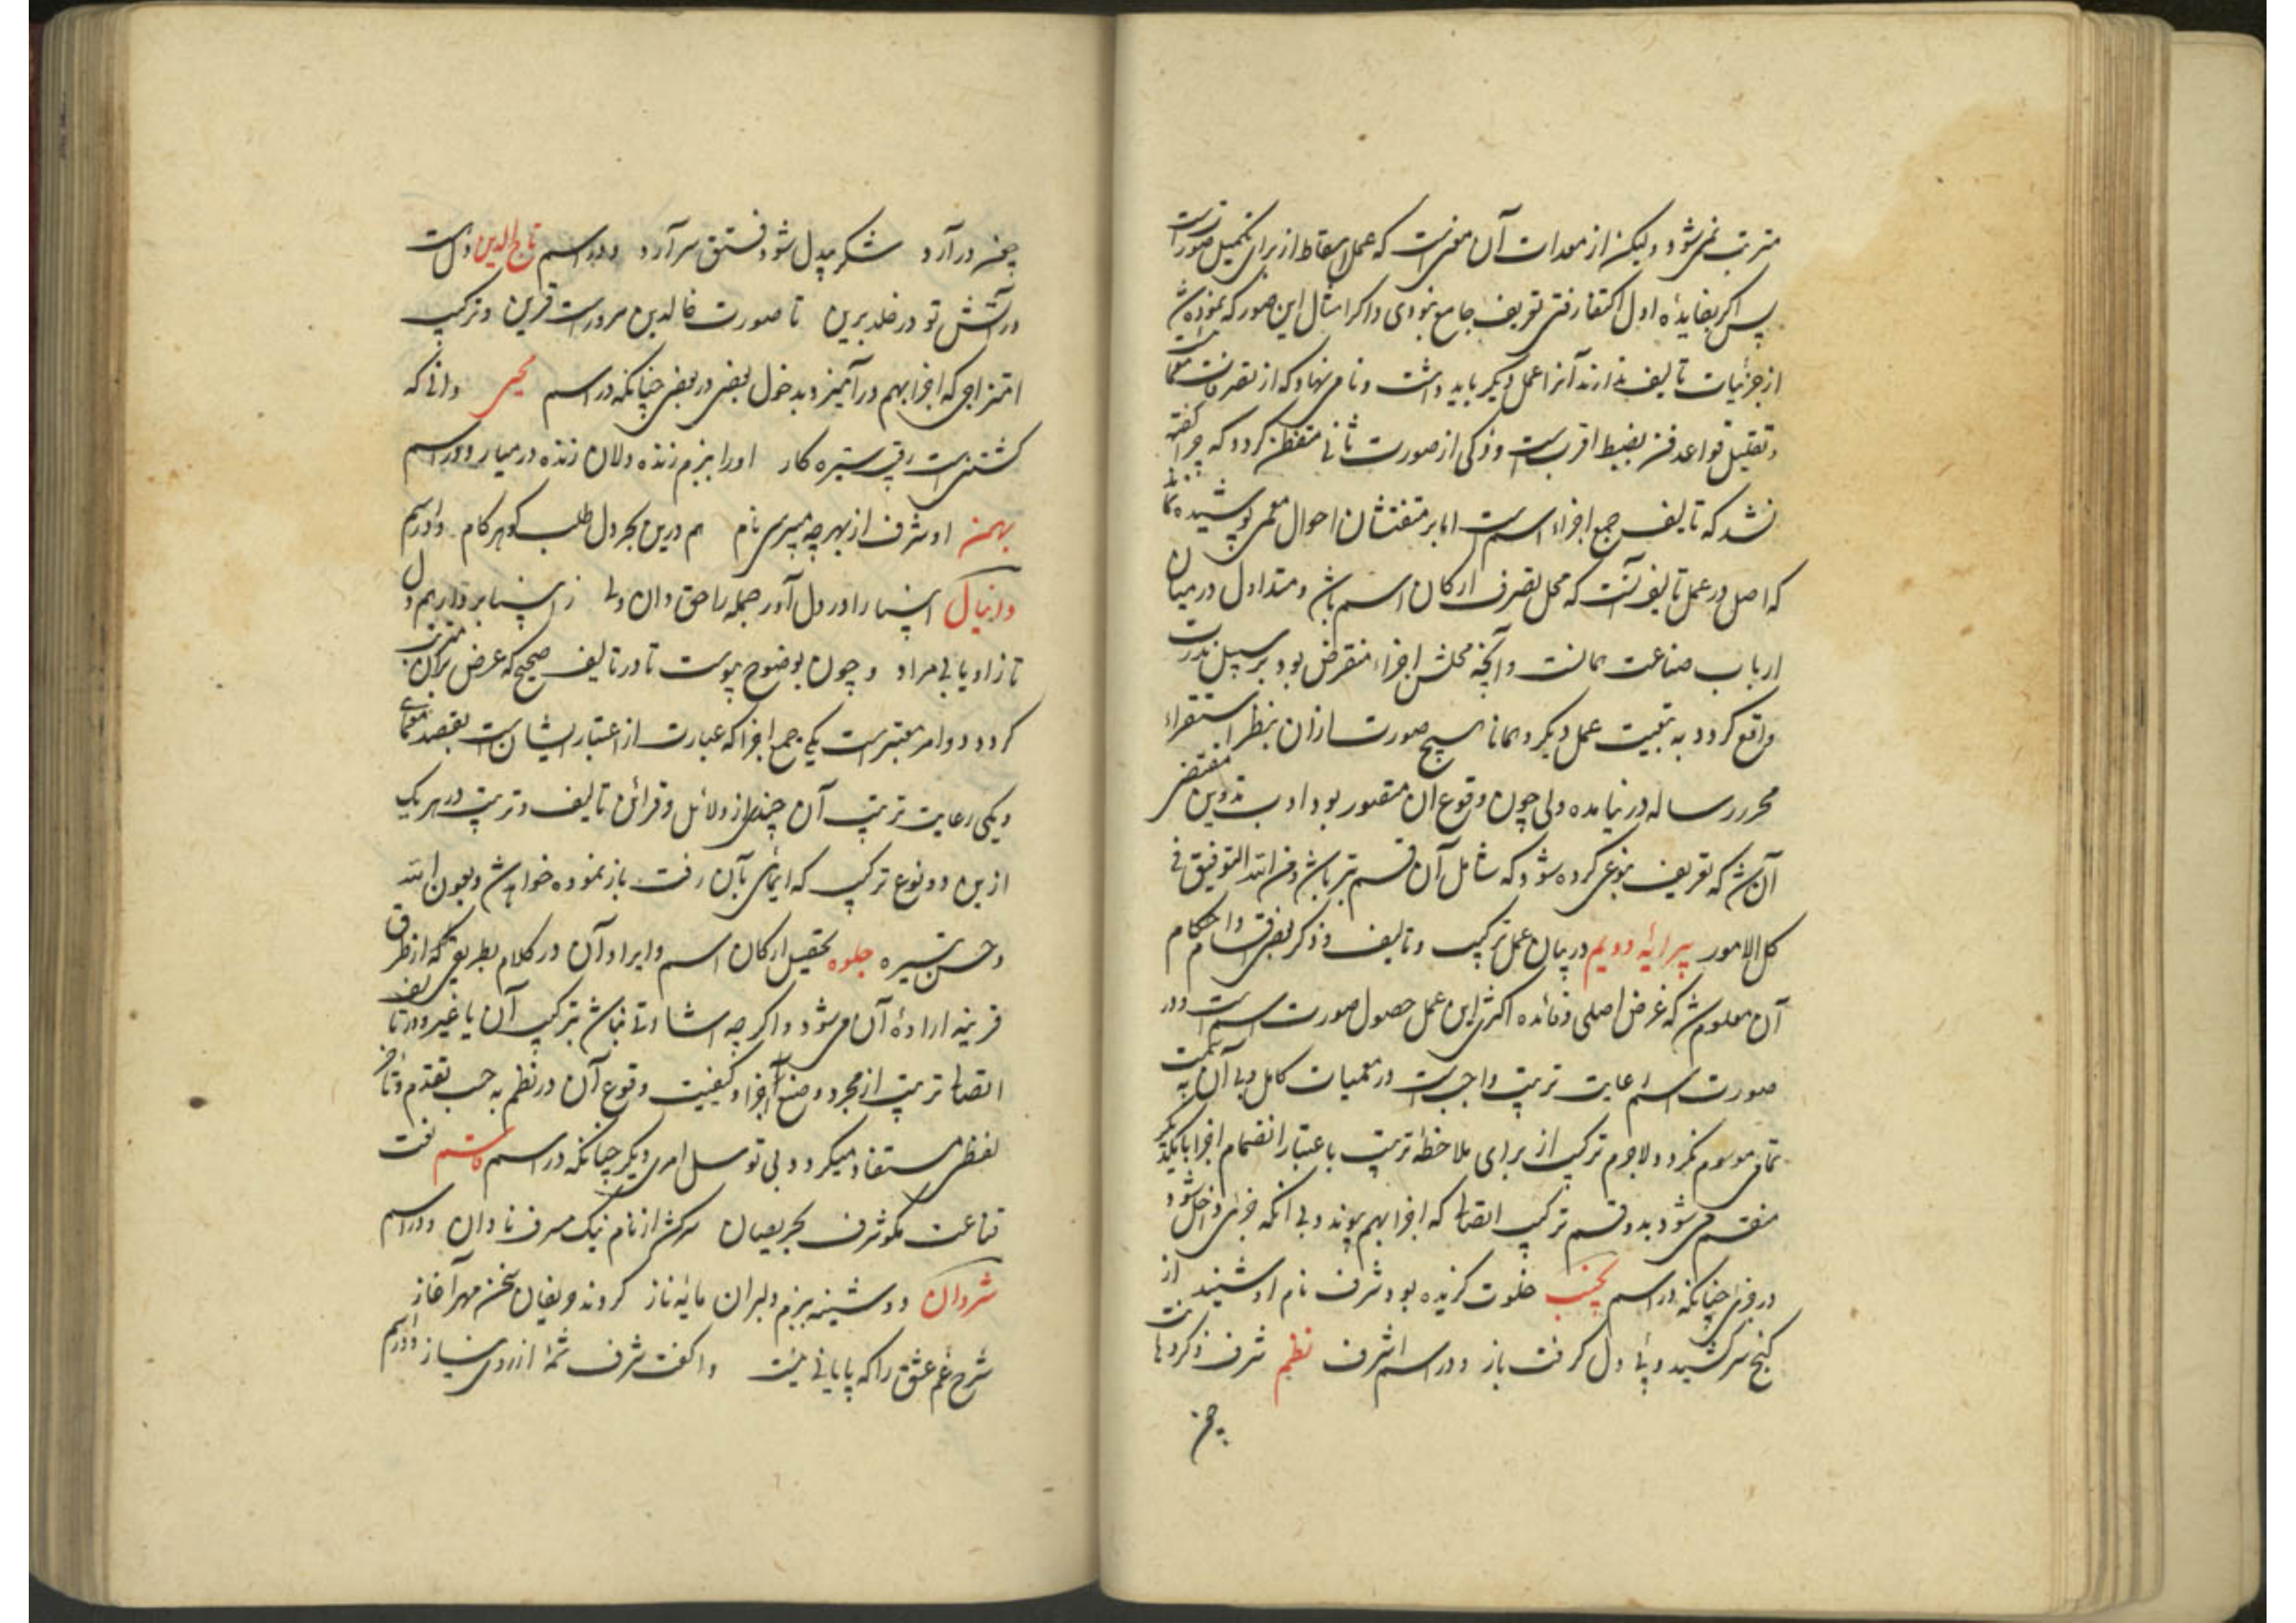 مترتب نمی‌شود ولیکن از معدات آن معنیست که عمل اسقاط از برای تکمیل صورتست
پس اگر بفایدهٔ اول اکتفا رفتی تعریف جامع نبودی و اگر امثال این صور که نموده شد
از جزئیات تالیف ندارند آنرا عمل دیگر باید داشت و نامی نهاد که از تصرفات معماست
و تقلیل قواعد فن بضبط اقربست و ذکی از صورت ثانی متفطن گردد که چرا گفته
نشد که تالیف جمع اجزاء اسمست اما بر متفتشان احوال معمی پوشیده نماند
که اصل در عمل تالیف آنست که محل تصرف ارکان اسم باشد و متداول در میان
ارباب صناعت همانست و آنچه محلش اجزاء منقرض بود بر سبیل ندرت
واقع گردد به تبعیت عمل دیگر و همانا هیچ صورت ازان بنظر استقراء
محرر رساله در نیامده ولی چون وقوع آن متصور بود ادب تدوین مقتضی
آن شد که تعریف بنوعی کرده شود که شامل آن قسم نیز باشد و من الله التوفیق فی
کل الامور پیرایه دویم در بیان عمل ترکیب و تالیف و ذکر بعضی اقسام و احکام
آن معلوم شد که غرض اصلی و فائده اکثری این عمل حصول صورت اسمست و در
صورت اسم رعایت ترتیب واجبست در معمیات کامل و بی آن به سمت
تمامی موسوم نگردد و لاجرم ترکیب از برای ملاحظهٔ ترتیب باعتبار انضمام اجزا با یکدیگر
منقسم می‌شود بدو قسم ترکیب اتصالی که اجزا بهم پیوندد بی آنکه جزئی داخل شود
در جزئی چنانکه در اسم خلوت گزیده بود شرف نام او شنید از
کنج سر کشید و پی دل گرفت باز و در اسم اشرف نظم شرف ذکر دهانت
چمن
چمن در آرد شکر بیدل شود فستق سر آرد و در اسم تاج الدین دلست
در آتش تو در خلد برین تا صورت خالدین مرور است قرین و ترکیب
امتزاجی که اجزا بهم در آمیزد بدخول بعضی در بعضی چنانکه در اسم محیی دانی که
کشتنیست رقیب ستیزه کار او را ببزم زنده دلان زنده در میار و در اسم
بهمن او شرف از بهر چه میپرسی نام هم درین بحر دل طلب گوهر کام و در اسم
دانیال اشیا را در دل آور جمله را حق دان ولی ز اشیا بردار هم دل
تا زاد یابی مراد و چون بوضوح پیوست تا در تالیف صحیح که غرض بران مترتب
گردد دو امر معتبرست یکی جمع اجزا که عبارت از اعتبار ایشانست بقصد معمای
و یکی رعایت ترتیب آن چندی از دلائل و قرائن تالیف و ترتیب در هر یک
ازین دو نوع ترکیب که ایمائی بآن رفت باز نموده خواهد شد بعون الله
و حسن تیسیره جلوه تحصیل ارکان اسم و ایراد آن در کلام بطریقی که از طرق
قرینه ارادهٔ آن می‌شود و اگر چه اشارتی نباشد بترکیب آن با غیر و در تالیف
اتصالی ترتیب از مجرد وضع اجزا و کیفیت وقوع آن در نظم به حسب تقدم و تاخر
لفظی مستفاد میگردد بی توسل امری دیگر چنانکه در اسم قاسم گفت
قناعت مگو شرف بحریصان سرکش از نام نیک مسرف نادان و در اسم
شروان دوشینه ببزم دلبران مایهٔ ناز کردند رفیقان سخن مهر آغاز
شرح غم عشق را که پایانی نیست وا گفت شرف شمهٔ از روی نیاز و در اسم